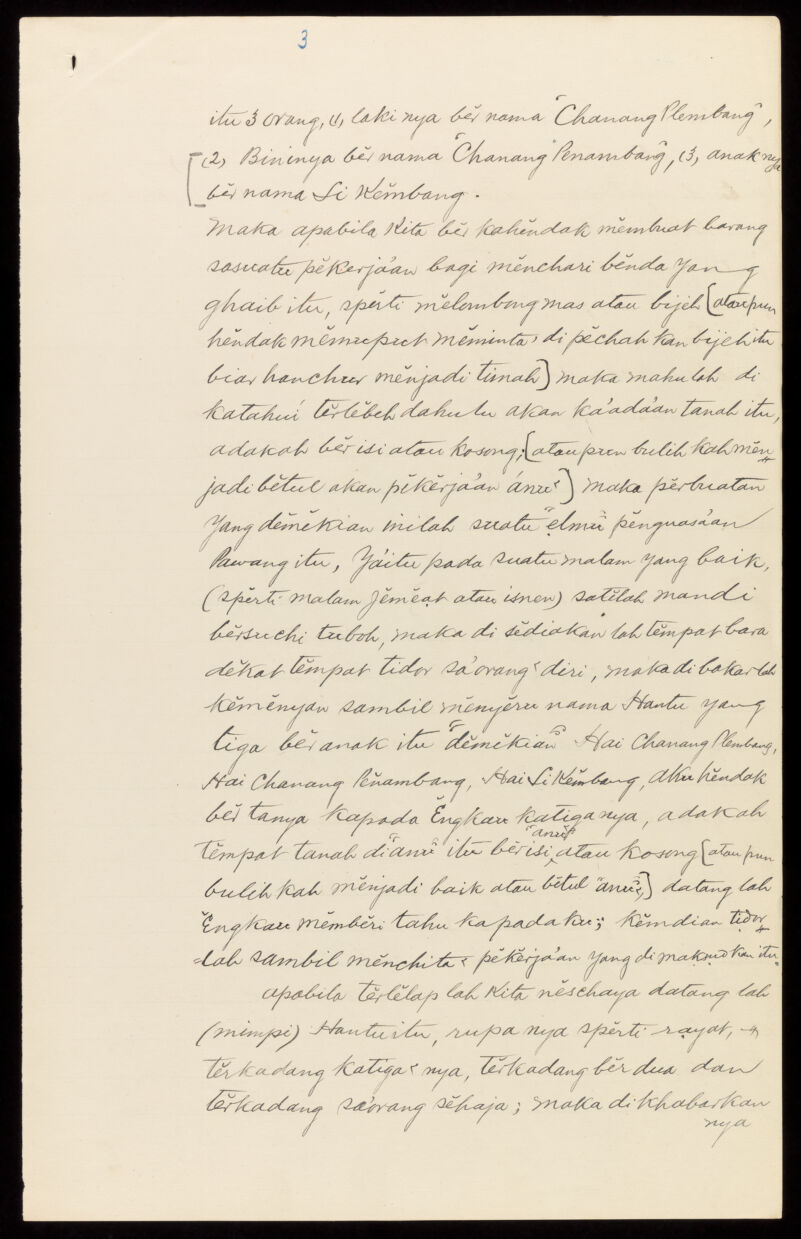 3
itu 3 orang, (1) laki nya bĕr nama "Chanang Plembang",
(2) Bininya bĕr nama "Chanang Penambang", (3) anak nya
bĕr nama Si Kĕmbang.
Maka apabila Kita bĕr kahĕndak mĕmbuat barang
sasuatu pĕkerja'an bagi mĕnchari bĕnda yang
ghaib itu, spĕrti mĕlombong mas atau bijeh [atau pun
hĕndak mĕmuput mĕminta' di pĕchah kan bijeh itu
biar hanchur mĕnjadi timah] maka mahu lah di
katahui tĕrlĕbeh dahulu akan ka'ada'an tanah itu,
adakah bĕr isi atau kosong; [atau pun bulih kah mĕn=
jadi bĕtul akan pĕkĕrja'an ánu'] maka pĕrbuatan
yang dĕmĕkian inilah suatu "elmu" pĕnguasa'an
Pawang itu, Ya'itu pada suatu malam yang baik,
(spĕrti malam Jĕmĕat atau isnen) satĕlah mandi
bĕrsuchi tuboh, maka di sĕdiakan lah tĕmpat bara
dĕkat tĕmpat tidor sa'orang' diri, maka di bakar lah
kĕmĕnyan sambil mĕnyĕru nama Hantu yang
tiga bĕranak itu "dĕmĕkian" Hai Chanang Plembang,
Hai Chanang Pĕnambang, Hai Si Kĕmbang, aku hĕndak
bĕr tanya kapada Ĕngkau katiga nya, adakah
tĕmpat tanah di "anu" itu bĕr isi "anu" atau kosong [atau pun
bulih kah mĕnjadi baik atau bĕtul "anu",] datang lah
Ĕngkau mĕmbĕri tahu ka pada ku; kĕmdian tidor
=lah sambil mĕnchita' pĕkĕrja'an yang di maksud kan itu.
apabila tĕrlĕlap lah Kita nĕschaya datang lah
(mimpi) Hantu itu, rupa nya spĕrti rayat,
tĕrkadang katiga' nya, tĕrkadang bĕr dua dan
tĕrkadang sa'orang sĕhaja; maka di khabarkan
nya